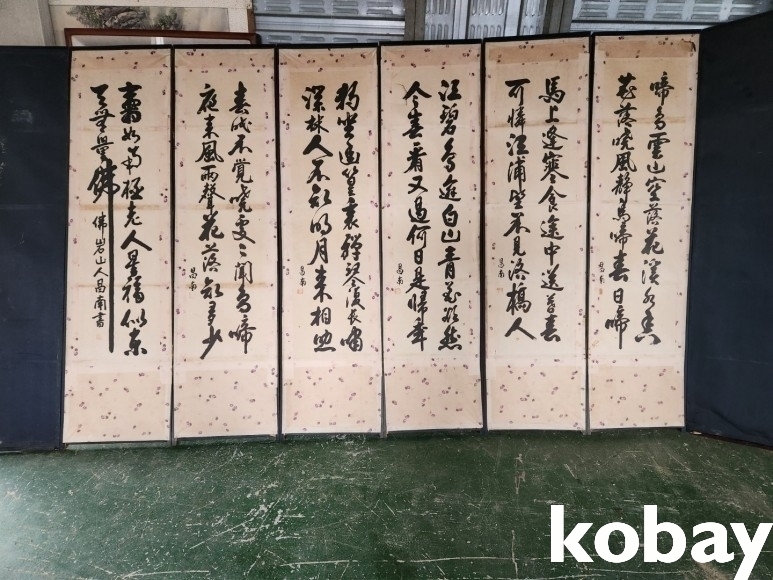 啼鳥雲山空落花溪水香
花落曉風靜鳥啼春日啼
昌南
馬上逢寒食途中送暮春
可憐江浦望不見洛橋人
昌南
江碧鳥逾白山青花欲然
今春看又過何日是歸年
昌南
獨坐幽篁裏彈琴復長嘯
深林人不知明月來相照
昌南
春眠不覺曉處々聞鳥啼
夜來風雨聲花落知多少
昌南
壽如南極老人星福似東
天無量佛
佛岩山人昌南書
kobay